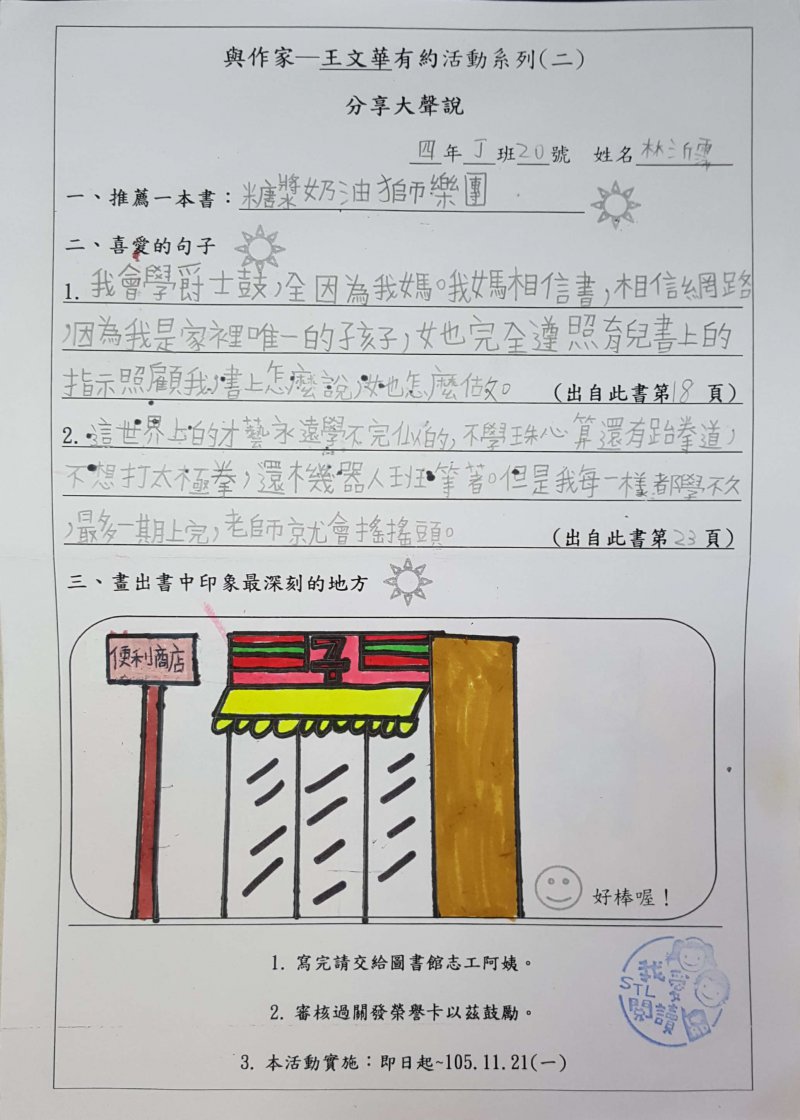 與作家─王文華有約活動系列(二)
分享大聲說
四年丁班20號 姓名林沂霈
一、推薦一本書：糖漿奶油獅樂團
二、喜愛的句子
1. 我會學爵士鼓，全因為我媽。我媽相信書，相信網路
，因為我是家裡唯一的孩子，她完全遵照育兒書上的
指示照顧我，書上怎麼說，她怎麼做。 (出自此書第18頁)
2. 這世界上的才藝永遠學不完似的，不學珠心算還有跆拳道，
不想打太極拳，還有機器人班等著。但是我每一樣都學不久
，最多一期上完，老師就會搖搖頭。 (出自此書第23頁)
三、畫出書中印象最深刻的地方
便利商店
子
好棒喔！
1. 寫完請交給圖書館志工阿姨。
2. 審核過關發榮譽卡以茲鼓勵。
3. 本活動實施：即日起~105.11.21(一)
我愛
STL
閱讀